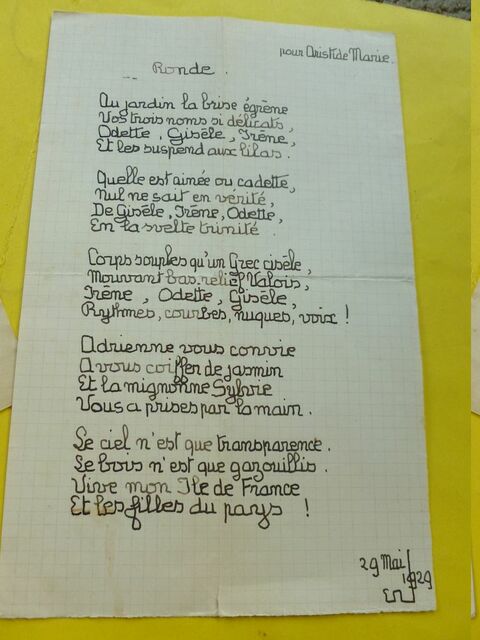 pour Aristide Marie.
Ronde.
Au jardin la brise égrène
Vos trois noms si délicats,
Odette, Gisèle, Irène,
Et les suspend aux lilas.
Quelle est ainée ou cadette,
Nul ne sait en vérité,
De Gisèle, Irène, Odette,
En la svelte trinité
Corps souples qu'un Grec cisèle,
Mouvant bas-relief Valois,
Irène, Odette, Gisèle,
Rythmes, courbes, nuques, voix !
Adrienne vous convie
A vous coiffer de jasmin
Et la mignonne Sylvie
Vous a prises par la main.
Le ciel n'est que transparence.
Le bois n'est que gazouillis.
Vive mon Ile de France
Et les filles du pays !
29 Mai
1929